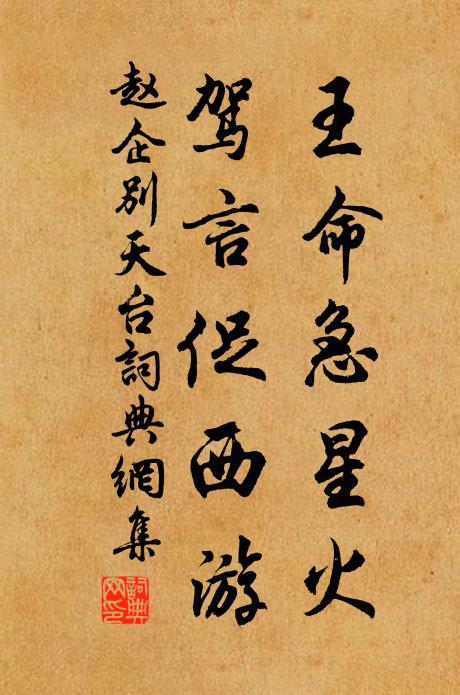 王命急星火
驾言促西游
赵企别天台詞典網集
詞典网印